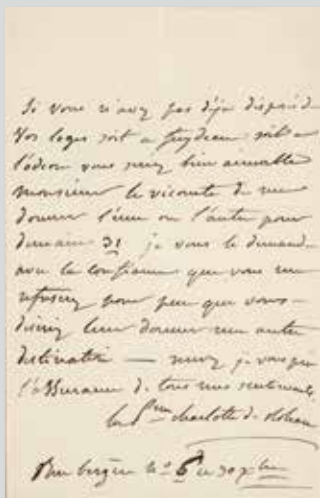 Si vous n'avez pas déja disposé de
vos loges soit a feydeau soit a
l'odeon vous serez bien aimable
monsieur le vicomte de me
donner l'une ou l'autre pour
demain 31 je vous le demande
avec la confiance que vous me
refuserez pour peu que vous
désiriez leur donner une autre
destination — recevez je vous prie
l'assurance de tous mes sentiments
la Psse charlotte de Rohan
Rue bergere n° 6 ce 30